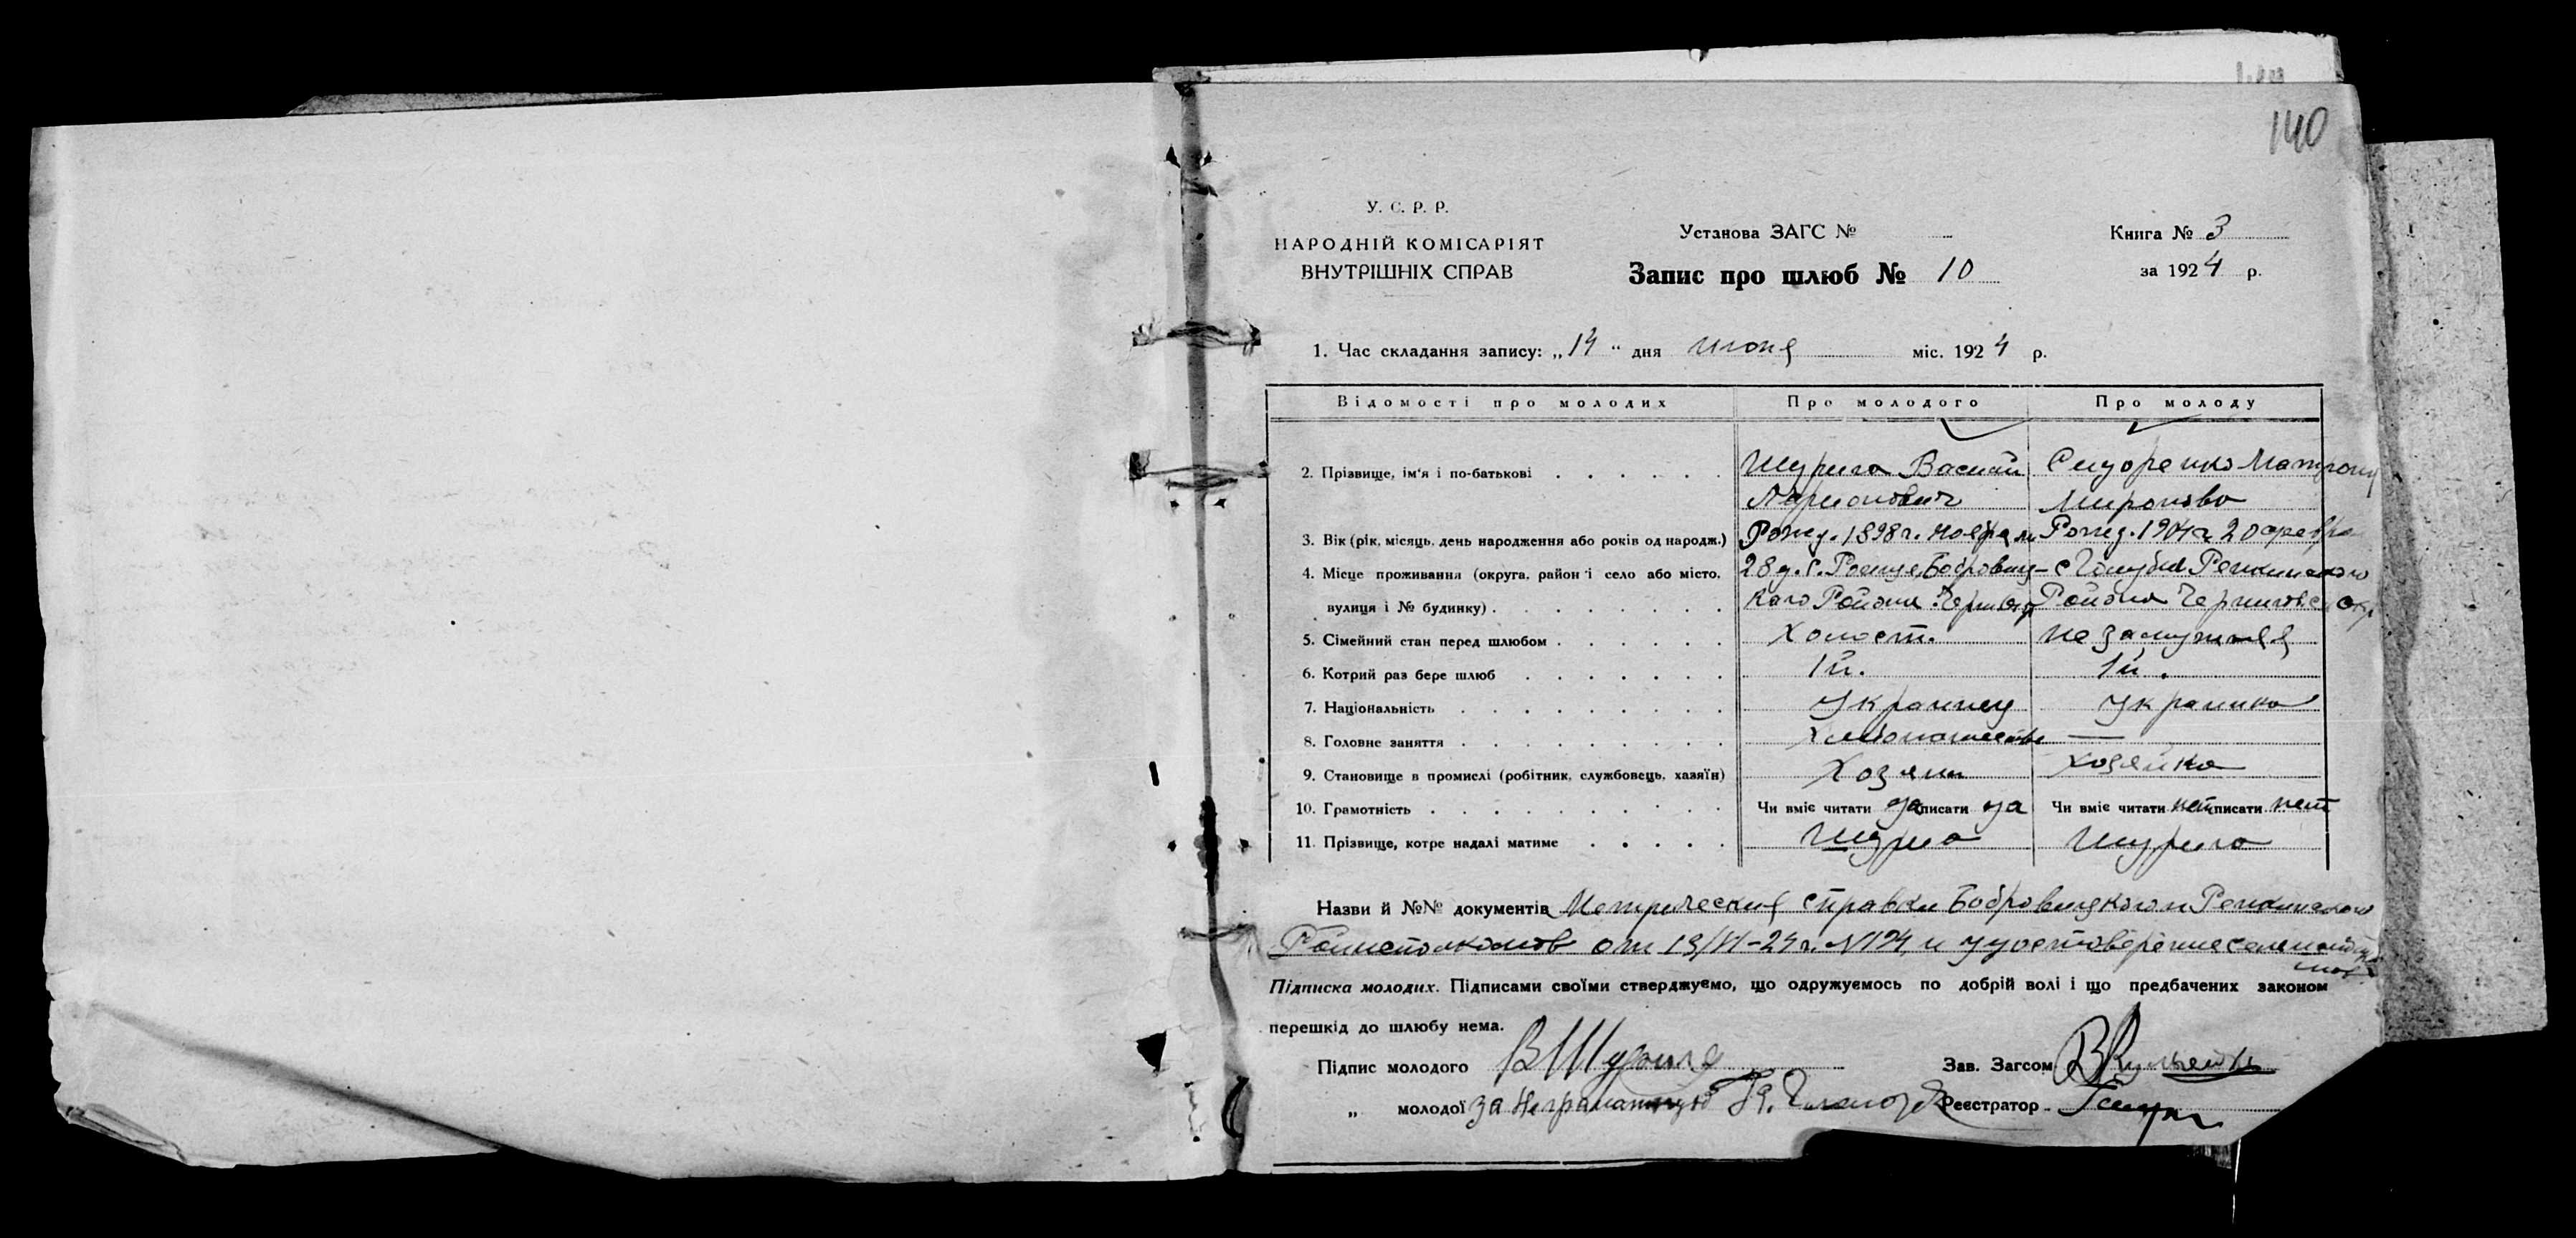 140
У. С. Р. Р.
НАРОДНІЙ КОМІСАРІЯТ
ВНУТРІШНІХ СПРАВ
Установа ЗАГС №
Запис про шлюб № 10
Книга № 3
за 1924 р.
1. Час складання запису: „14“ дня июня міс. 1924 р.
Відомості про молодих Про молодого Про молоду
2. Прізвище, ім'я і по-батькові Шурига Василий Сидоренко Матрона
Ларионович Миронова
3. Вік (рік, місяць, день народження або років од народж.) Рожд. 1898 г. ноября Рожд. 1904 г. 20 февра
4. Місце проживання (округа, район і село або місто, 28 д. с. Роище Бобровиц- с Репкинского
вулиця і № будинку) каго Района Района Черниговск окр
5. Сімейний стан перед шлюбом Холост. незамужняя
6. Котрий раз бере шлюб 1й. 1й.
7. Національність Украинец Украинка
8. Головне заняття Хлебопашество —
9. Становище в промислі (робітник, службовець, хазяїн) Хозяин хозяйка
10. Грамотність Чи вміє читати да писати да Чи вміє читати нет писати нет
11. Прізвище, котре надалі матиме Шурига Шурига
Назви й №№ документів Метрическия справки Бобровицкого и Репкинского
Райисполкомов от 13/VI-24 г. и удостоверение
Підписка молодих. Підписами своїми стверджуємо, що одружуємось по добрій волі і що предбачених законом
перешкід до шлюбу нема.
Підпис молодого ВШурига Зав. Загсом
„ молодої за неграмотную Реєстратор